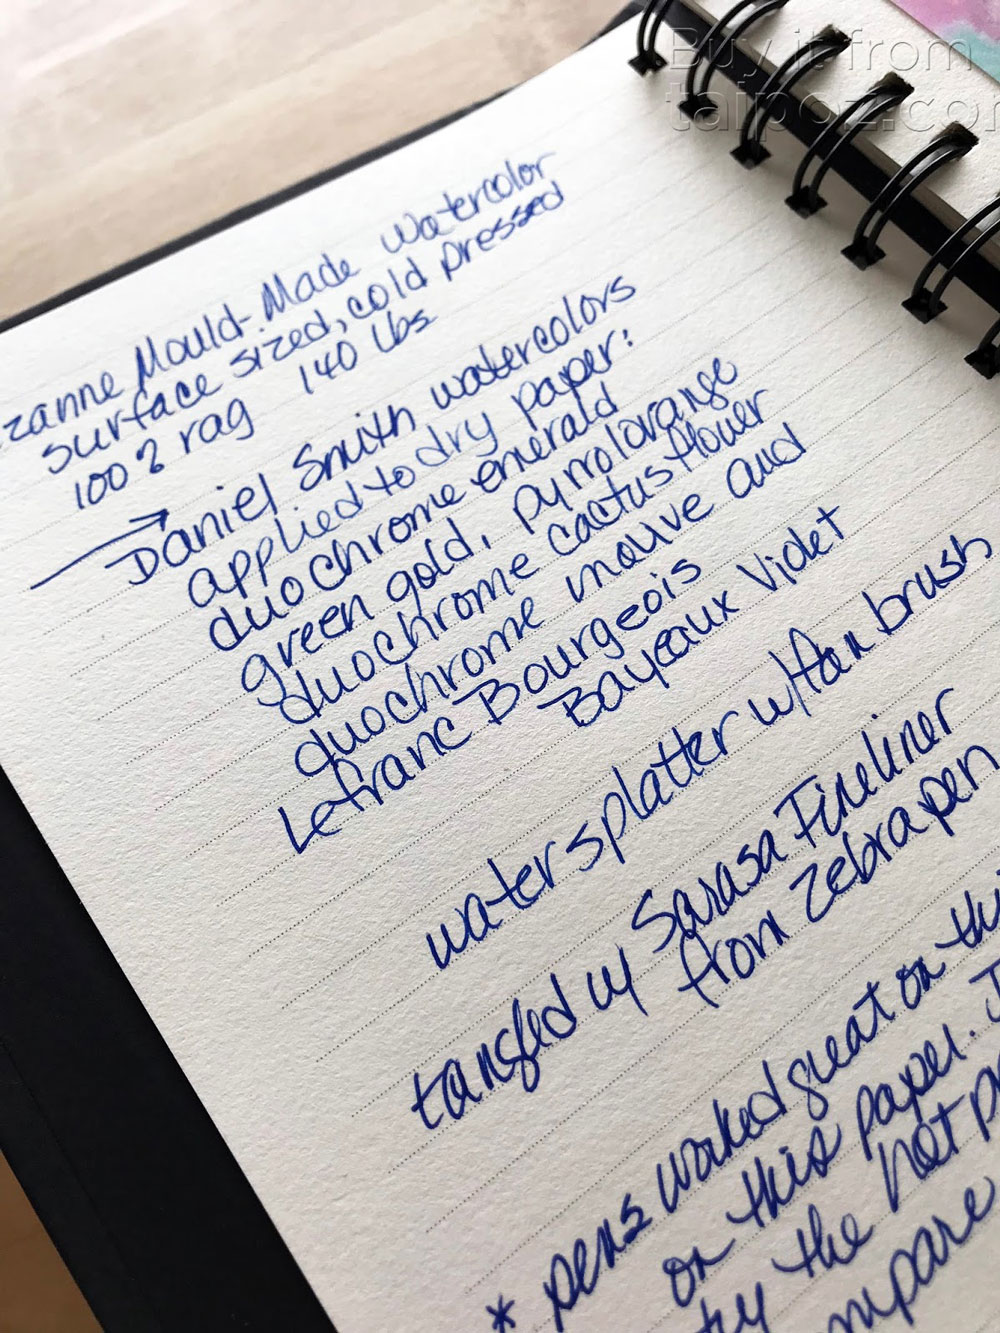 Buy it from
taipoz.co
zanne Mould-Made Watercolor
surface sized, cold pressed
100% rag 140 lbs
→ Daniel Smith watercolors
applied to dry paper:
duochrome emerald
green gold, pyrrol orange
duochrome cactus flower
duochrome mauve and
Lefranc Bourgeois
Bayeaux Violet
water splatter w/fan brush
tangled w/ Sarasa Fineliner
from Zebra pen
* pens worked great on thi
on this paper. I
the hot p
mpare